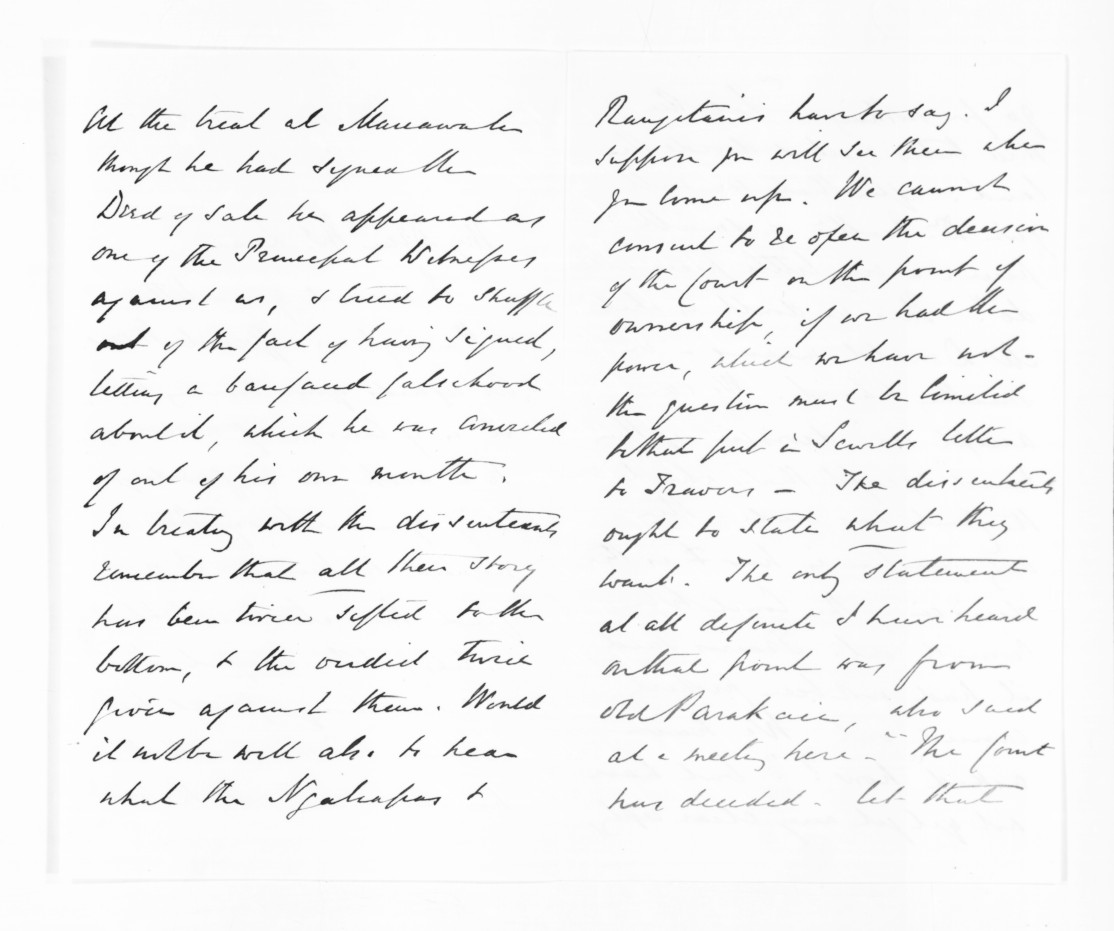 At the trial at Manawatu
though he had signed the
Deed of Sale he appeared as
one of the Principal Witnesses
against us, & tried to shuffle
out of the fact of having signed,
telling a barefaced falsehood
about it, which he was convicted
of out of his own mouth.
In treating with the dissentients
remember that all their story
has been twice sifted to the
bottom, & the verdict twice
given against them. Would
it not be well also to hear
what the Ngatiapas &
Rangitanis have to say. I
suppose you will see them when
you come up. We cannot
consent to re open the decision
of the Court on the point of
ownership, if we had the
power, which we have not -
the question must be limited
to that put in Sewells letter
to Travers - The dissentients
ought to state what they
want. The only statement
at all definite I have heard
on that point was from
old Parakaia, who said
at a meeting here - "The Court
has decided - let that